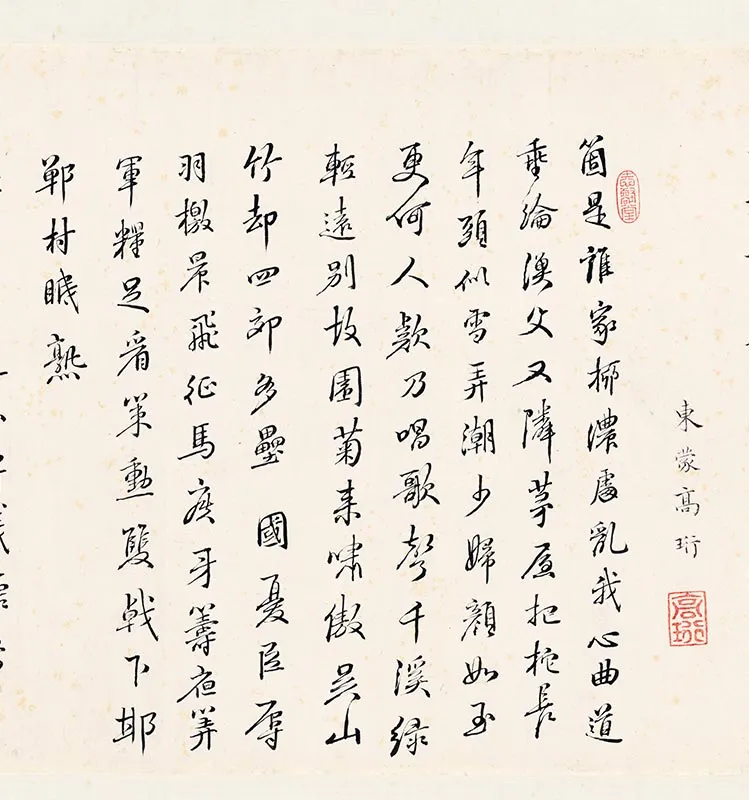 東蒙高珩
高珩
箇是誰家柳濃處亂我心曲道
垂綸漁父又隣茅屋把柁長
年頭似雪弄潮少婦顏如玉
更何人欵乃唱歌聲千溪緑
輕遠別故園菊來嘯傲吴山
竹却四郊多壘 國憂臣辱
羽檄晨飛征馬疾牙籌夜筭
軍糧足看策勳雙戟下邯
鄲村眠熟